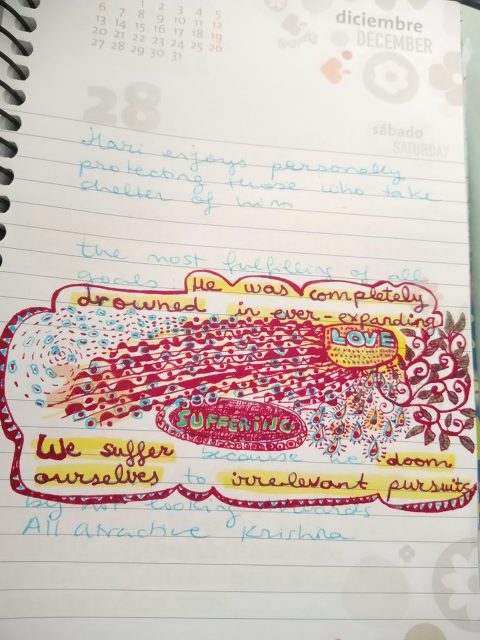 1 2 3 4 5
6 7 8 9 10 11 12
13 14 15 16 17 18 19
20 21 22 23 24 25 26
27 28 29 30 31
diciembre
DECEMBER
28
sábado
SATURDAY
Hari enjoys personally
protecting those who take
shelter of him
the most fulfilling of all
goals. He was completely
drowned in ever-expanding
LOVE
SUFFERING
We suffer because doom
ourselves to irrelevant pursuits
by not looking towards
All atractive Krishna